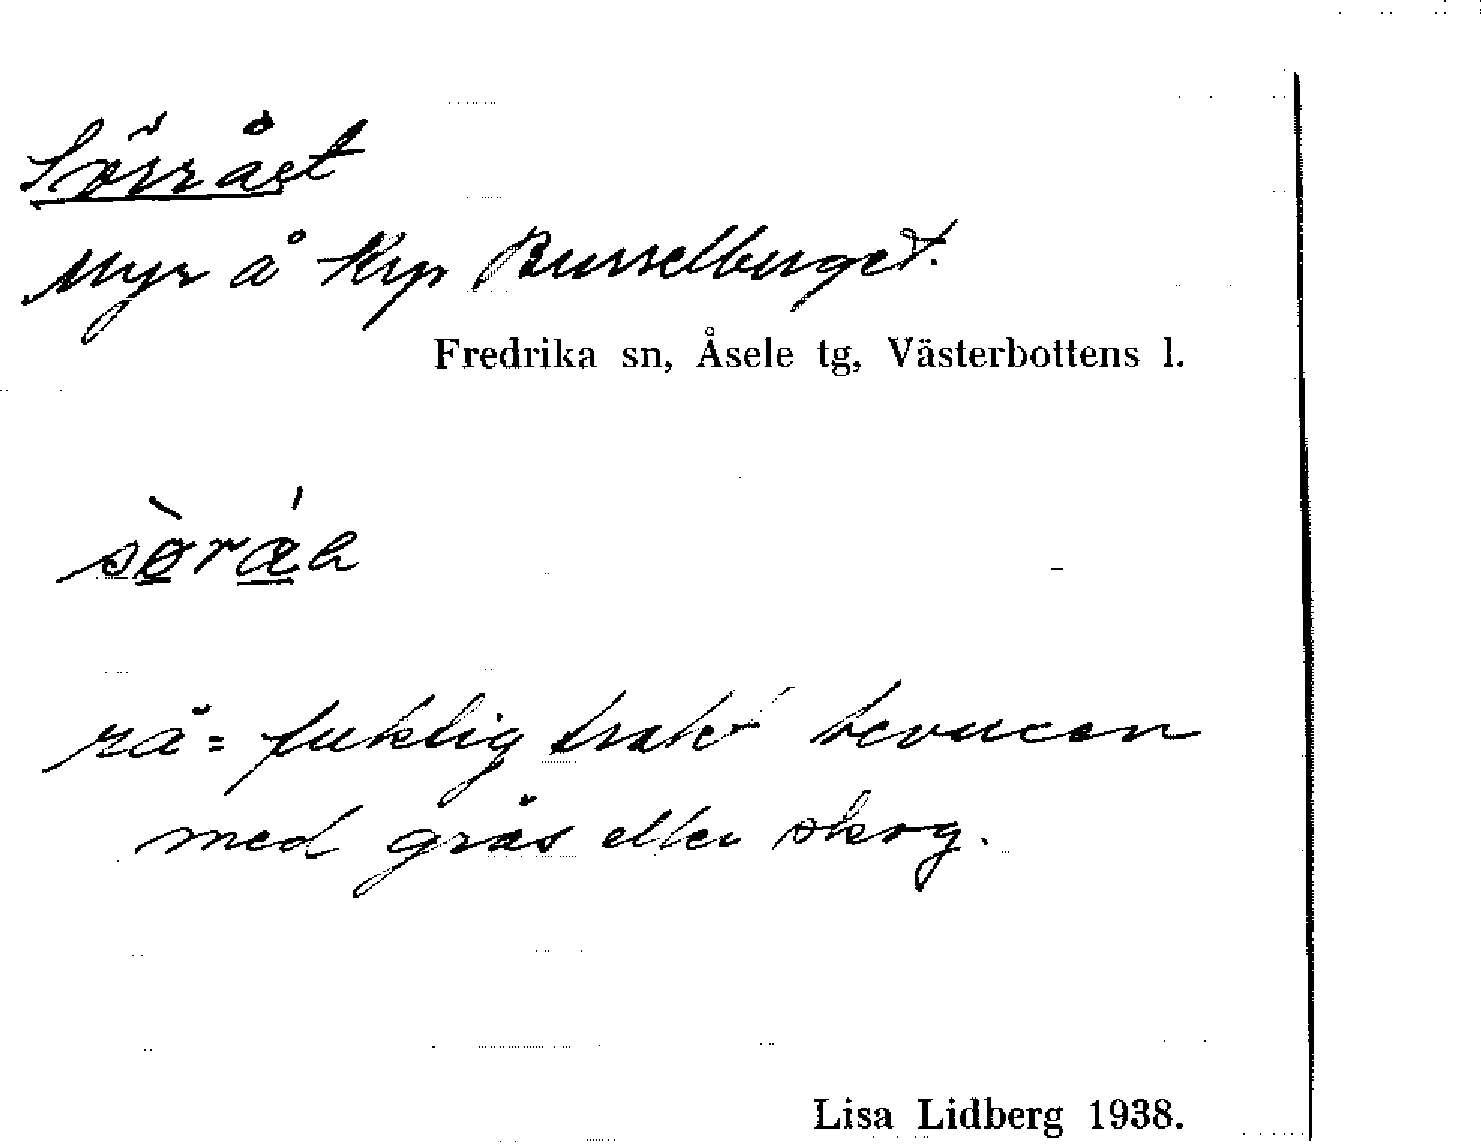 Sörrået
Myr å Krp Busselberget.
Fredrika sn, Åsele tg, Västerbottens l.
rå = fuktig trakt bevuxen
med gräs eller skog.
Lisa Lidberg 1938.